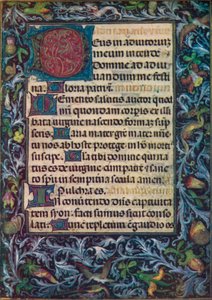 Deus in adiutorium
meum intende.
Domine ad ad iu
uandum me festi
na. Gloria patri
Memento salutis auctor quod
nostri quondam corporis ex illi
bata virgine nascendo formam sump
seris. Maria mater gratie mater mise
tu nos ab hoste protege in hora mortis
suscipe. Gloria tibi domine qui na
tus es de virgine cum patre et sanc
to spiritu in sempiterna secula amen.
Pulchra es.
In convertendo dominus captivita
tem syon: facti sumus sicut conso
lati. Tunc repletum est gaudio os